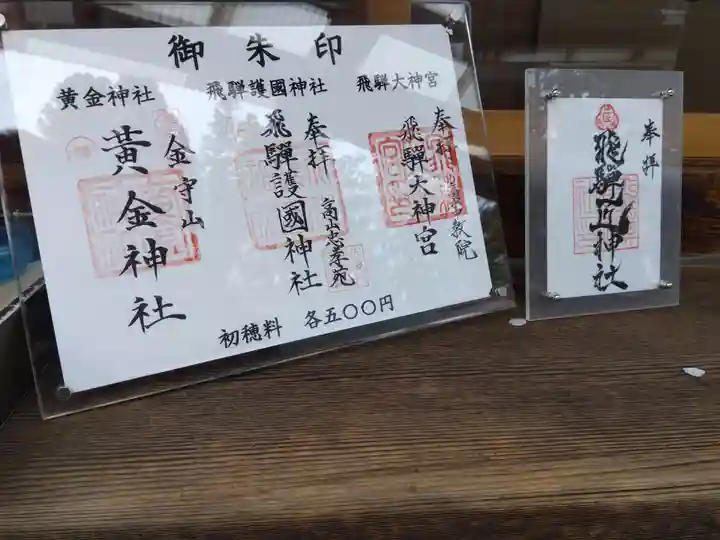 御朱印
黄金神社
飛騨護國神社
飛騨大神宮
金守山
黄金神社
奉拝
飛騨護國神社
高山忠孝苑
奉拝
飛騨大神宮
教院
初穂料 各五〇〇円
奉拝
飛騨匠神社